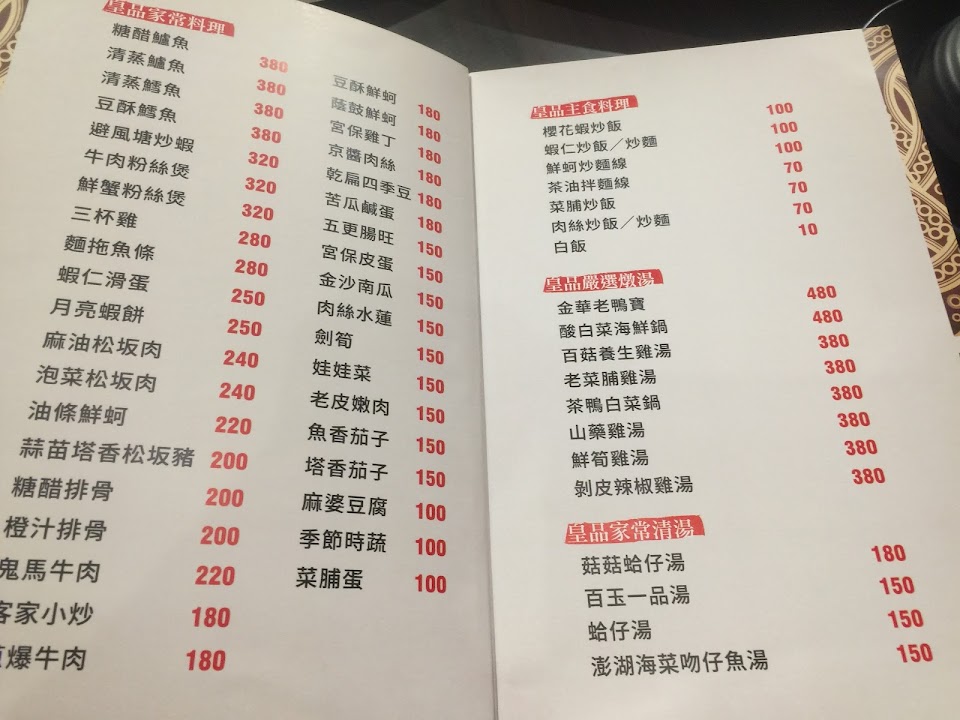 皇品家常料理
糖醋鱸魚 380
清蒸鱸魚 380
清蒸鱈魚 380
豆酥鱈魚 380
避風塘炒蝦 320
牛肉粉絲煲 320
鮮蟹粉絲煲 320
三杯雞 280
麵拖魚條 280
蝦仁滑蛋 250
月亮蝦餅 250
麻油松坂肉 240
泡菜松坂肉 240
油條鮮蚵 220
蒜苗塔香松坂豬 200
糖醋排骨 200
橙汁排骨 200
鬼馬牛肉 220
客家小炒 180
爆牛肉 180
豆酥鮮蚵 180
蔭鼓鮮蚵 180
宮保雞丁 180
京醬肉絲 180
乾扁四季豆 180
苦瓜鹹蛋 180
五更腸旺 150
宮保皮蛋 150
金沙南瓜 150
肉絲水蓮 150
劍筍 150
娃娃菜 150
老皮嫩肉 150
魚香茄子 150
塔香茄子 150
麻婆豆腐 100
季節時蔬 100
菜脯蛋 100
皇品主食料理
櫻花蝦炒飯 100
蝦仁炒飯／炒麵 100
鮮蚵炒麵線 100
茶油拌麵線 70
菜脯炒飯 70
肉絲炒飯／炒麵 70
白飯 10
皇品嚴選燉湯
金華老鴨寶 480
酸白菜海鮮鍋 480
百菇養生雞湯 380
老菜脯雞湯 380
茶鴨白菜鍋 380
山藥雞湯 380
鮮筍雞湯 380
剝皮辣椒雞湯 380
皇品家常清湯
菇菇蛤仔湯 180
百玉一品湯 150
蛤仔湯 150
澎湖海菜吻仔魚湯 150